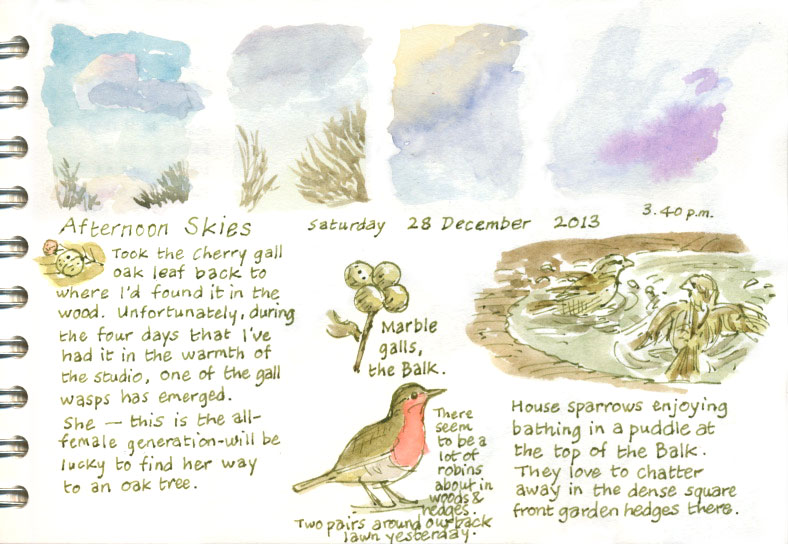 Afternoon Skies Saturday 28 December 2013
3.40 p.m.
Took the Cherry gall
oak leaf back to
where I'd found it in the
wood. Unfortunately, during
the four days that I've
had it in the warmth of
the studio, one of the gall
wasps has emerged.
She — this is the all-
female generation - will be
lucky to find her way
to an oak tree.
Marble
galls,
the Balk.
There
seem
to be a
lot of
robins
about in
woods &
hedges.
Two pairs around our back
lawn yesterday.
House sparrows enjoying
bathing in a puddle at
the top of the Balk.
They love to chatter
away in the dense square
front garden hedges there.